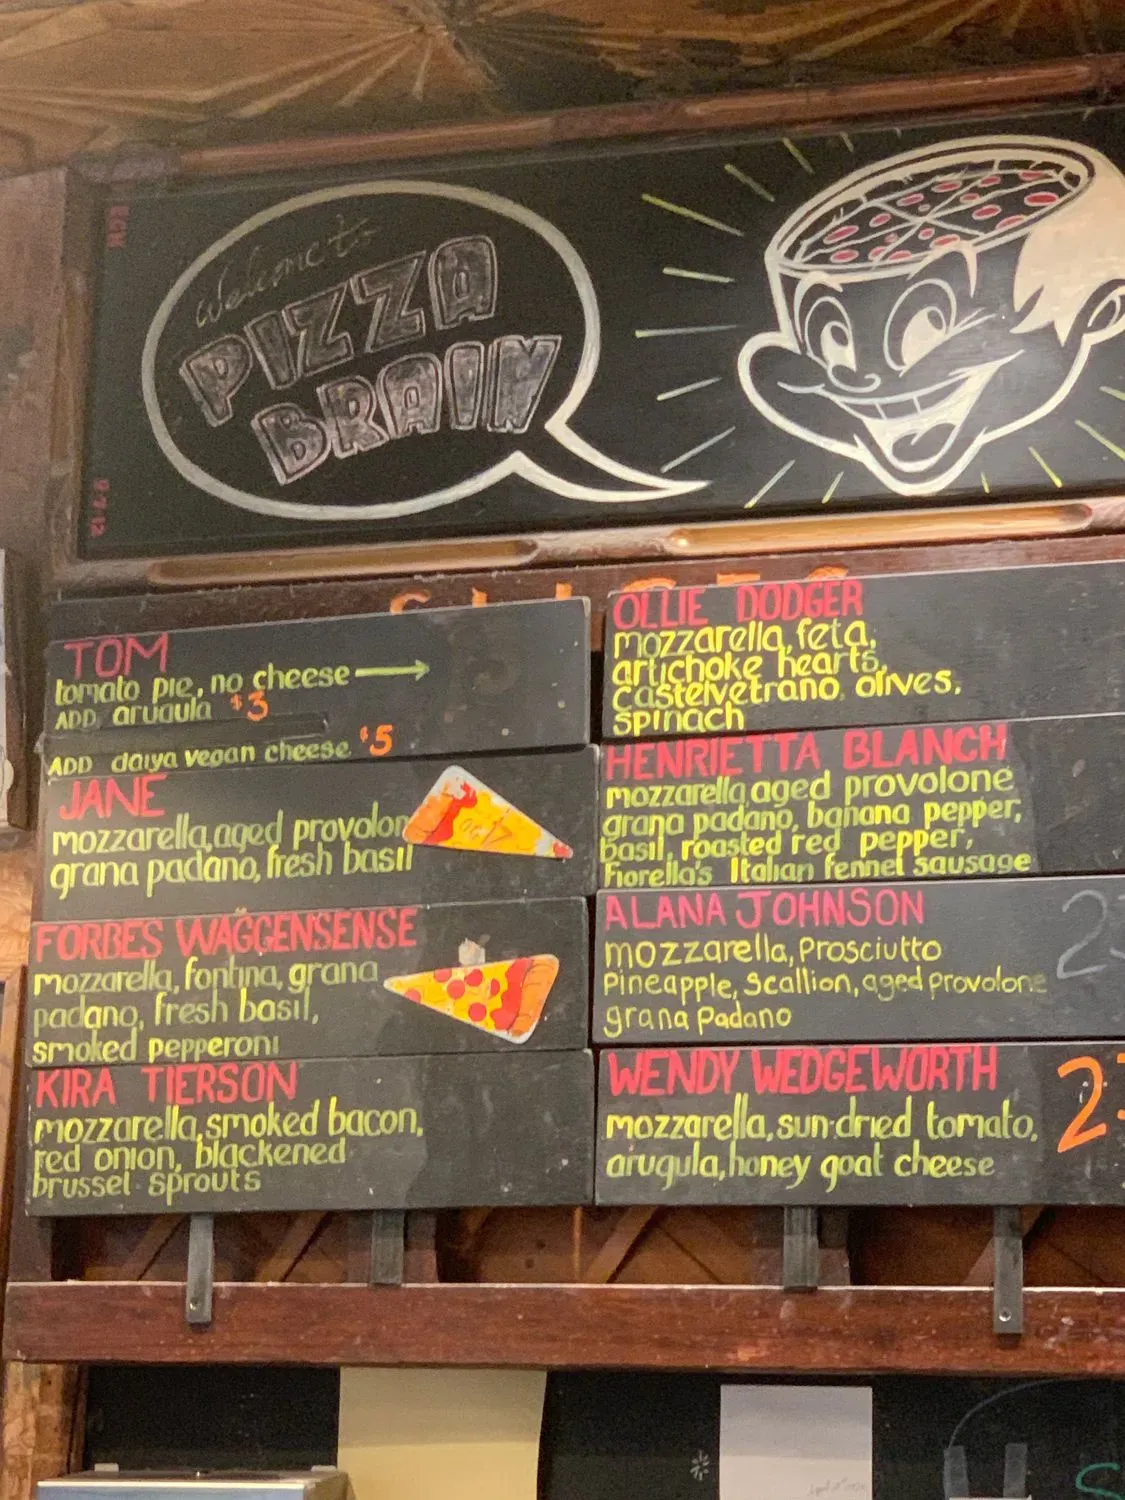 Welcome to
PIZZA
BRAIN
TOM
tomato pie, no cheese
ADD arugula $3
ADD daiya vegan cheese $5
JANE
mozzarella, aged provolon
grana padano, fresh basil
FORBES WAGGENSENSE
mozzarella, fontina, grana
padano, fresh basil,
smoked pepperoni
KIRA TIERSON
mozzarella, smoked bacon,
red onion, blackened
brussel sprouts
OLLIE DODGER
mozzarella, feta,
artichoke hearts,
castelvetrano olives,
spinach
HENRIETTA BLANCH
mozzarella, aged provolone
grana padano, banana pepper,
basil, roasted red pepper,
Fiorella's Italian fennel sausage
ALANA JOHNSON
mozzarella, Prosciutto
Pineapple, Scallion, aged Provolone
grana Padano
WENDY WEDGEWORTH
mozzarella, sun-dried tomato,
arugula, honey goat cheese